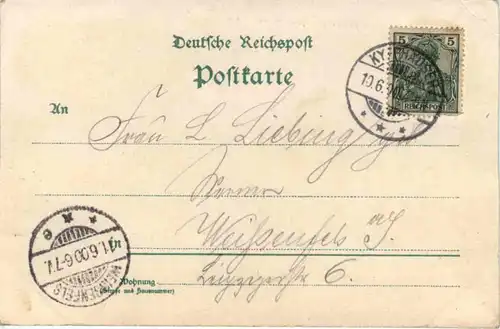 5 5
REICHSPOST
Deutsche Reichspost
Postkarte
An
Frau L. Liebing
in
Weißenfels a/S.
Wohnung
(Straße und Hausnummer)
Leipzigerstr 6.
KYFF
10.6.
11.6.00.6-7N.
WEISSENFELS
e